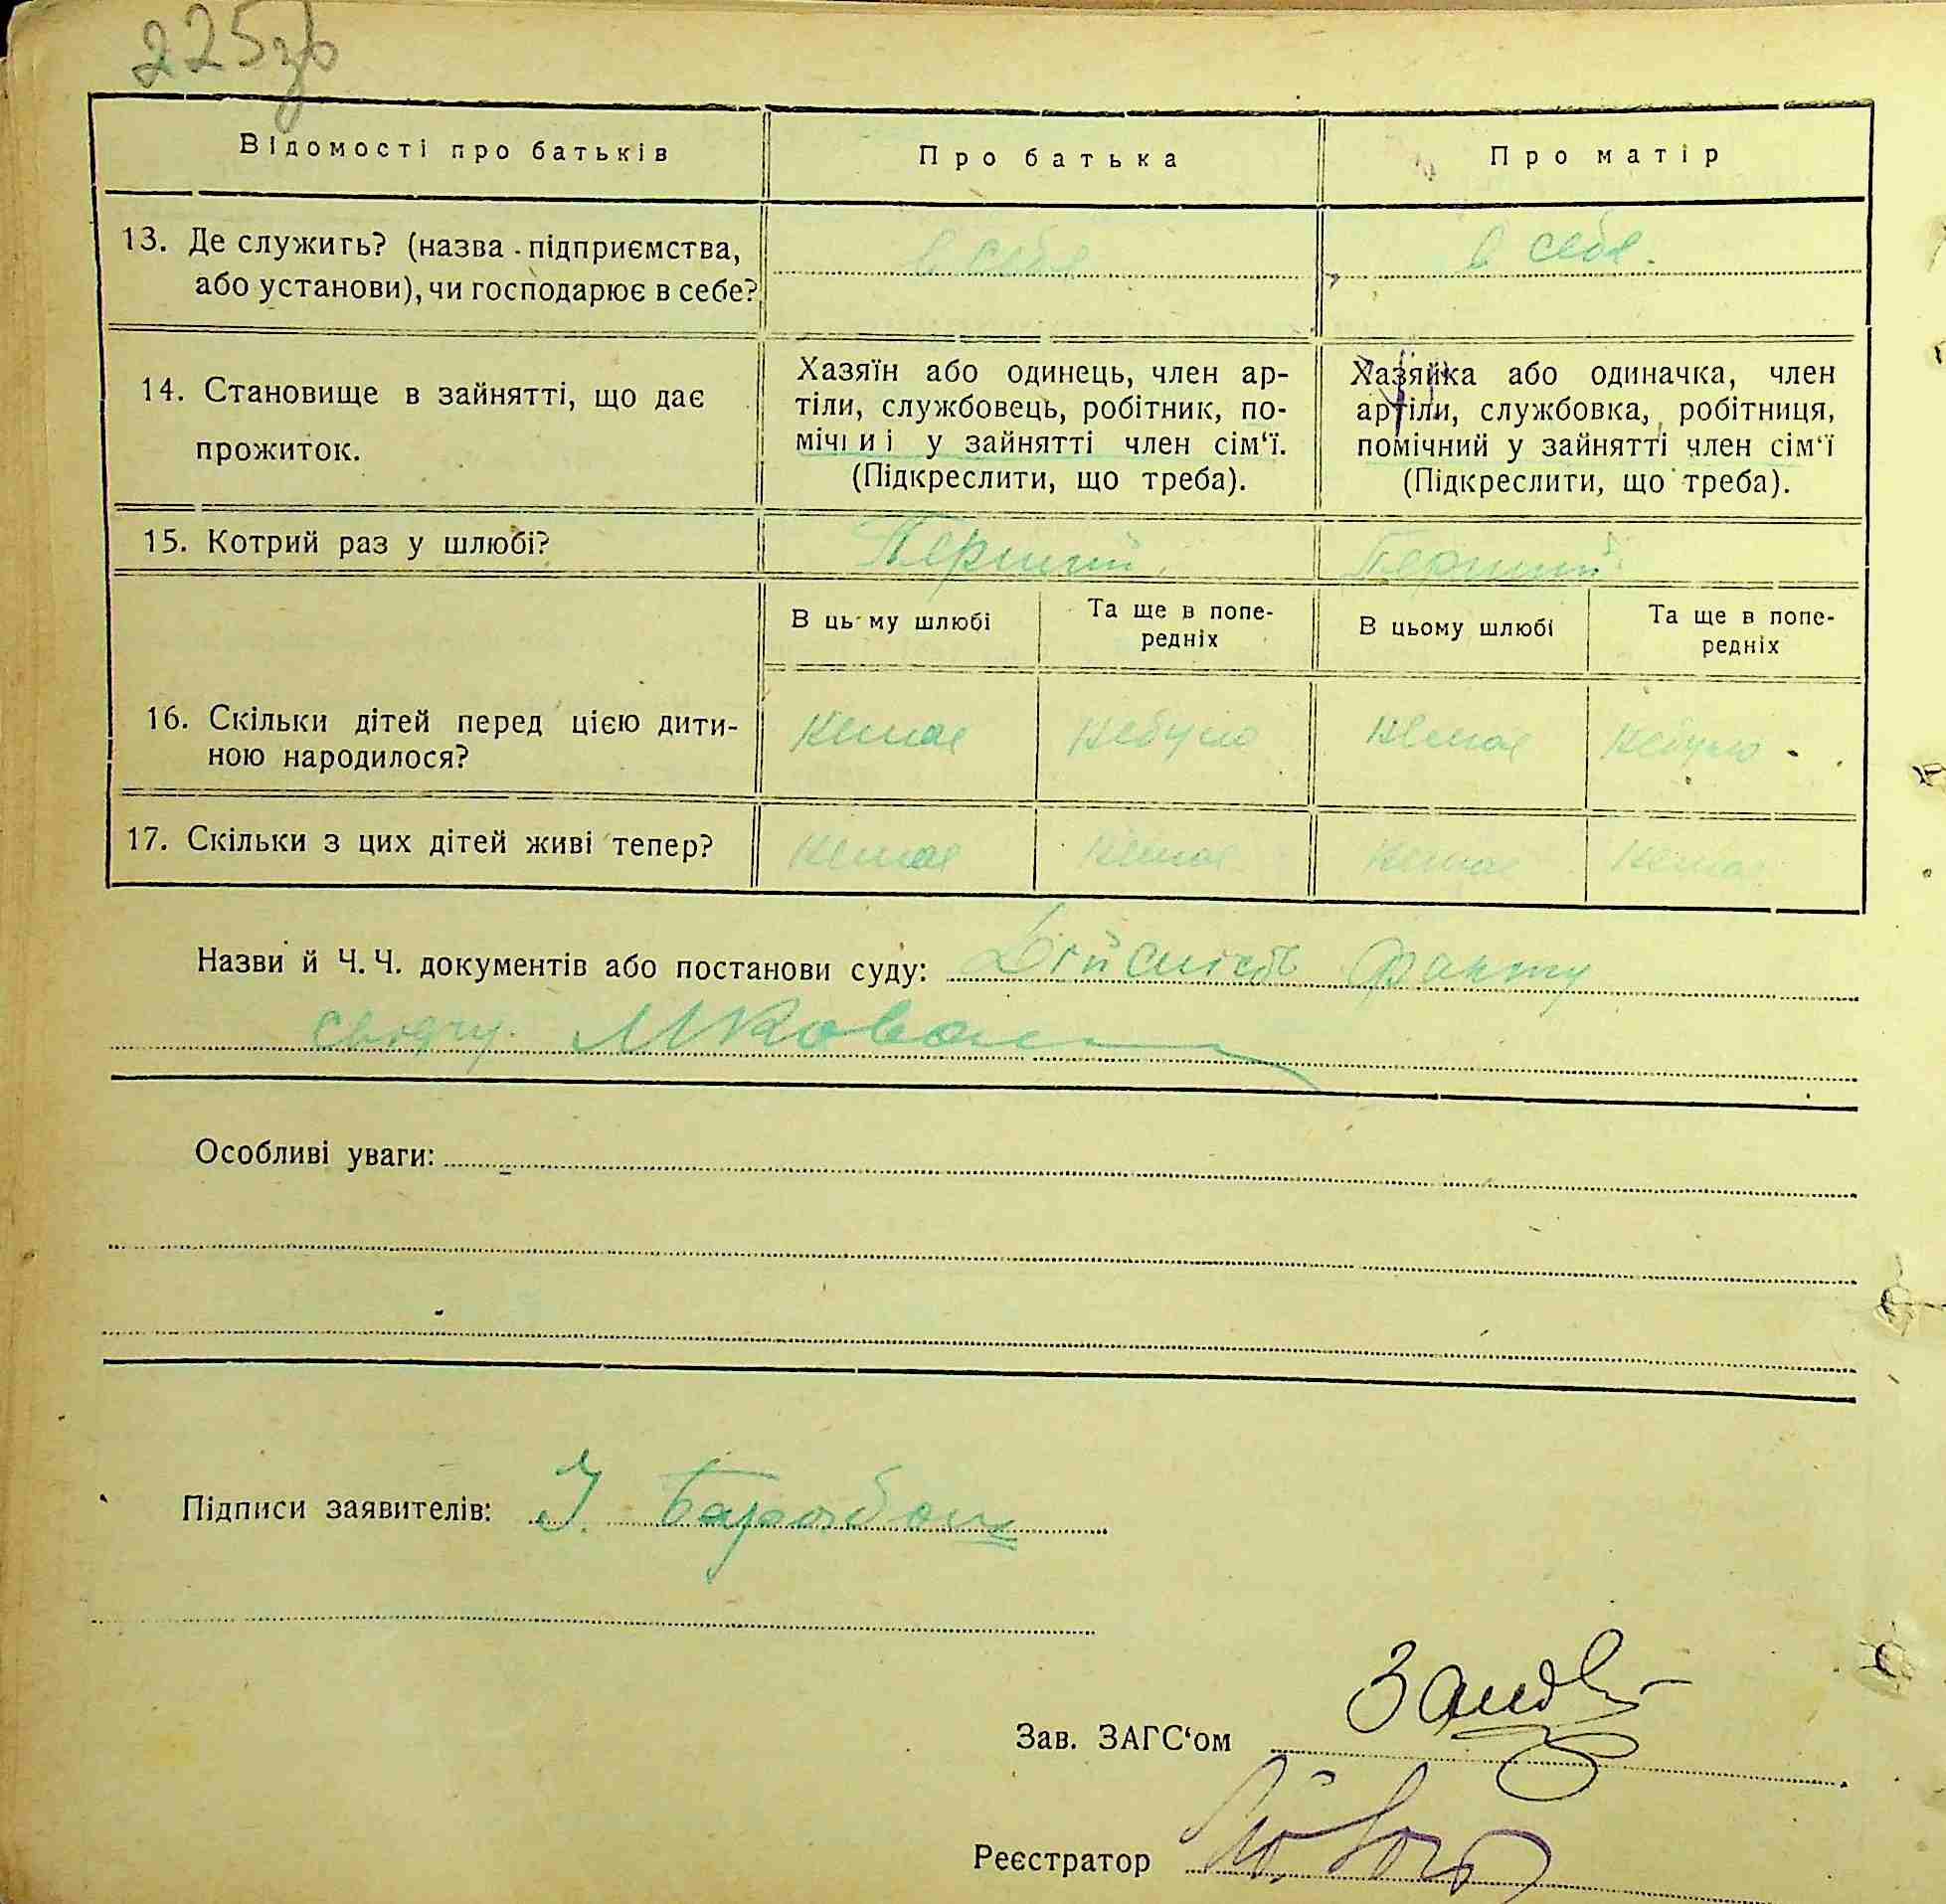 225зв
Відомості про батьків
Про батька
Про матір
13. Де служить? (назва підприємства,
або установи), чи господарює в себе?
в себе
в себе.
14. Становище в зайнятті, що дає
прожиток.
Хазяїн або одинець, член ар-
тіли, службовець, робітник, по-
мічниі у зайнятті член сім‘ї.
(Підкреслити, що треба).
Хазяйка або одиначка, член
артіли, службовка, робітниця,
помічний у зайнятті член сім‘ї
(Підкреслити, що треба).
15. Котрий раз у шлюбі?
Перший
Перший
В цьому шлюбі
Та ще в попе-
редніх
В цьому шлюбі
Та ще в попе-
редніх
16. Скільки дітей перед цією дити-
ною народилося?
немає
небуло
немає
небуло
17. Скільки з цих дітей живі тепер?
немає
немає
немає
немає
Назви й Ч. Ч. документів або постанови суду: Дійсність факту
свідчу. МКовал
Особливі уваги:
Підписи заявителів: У. Барабаш
Зав. ЗАГС‘ом
Реєстратор